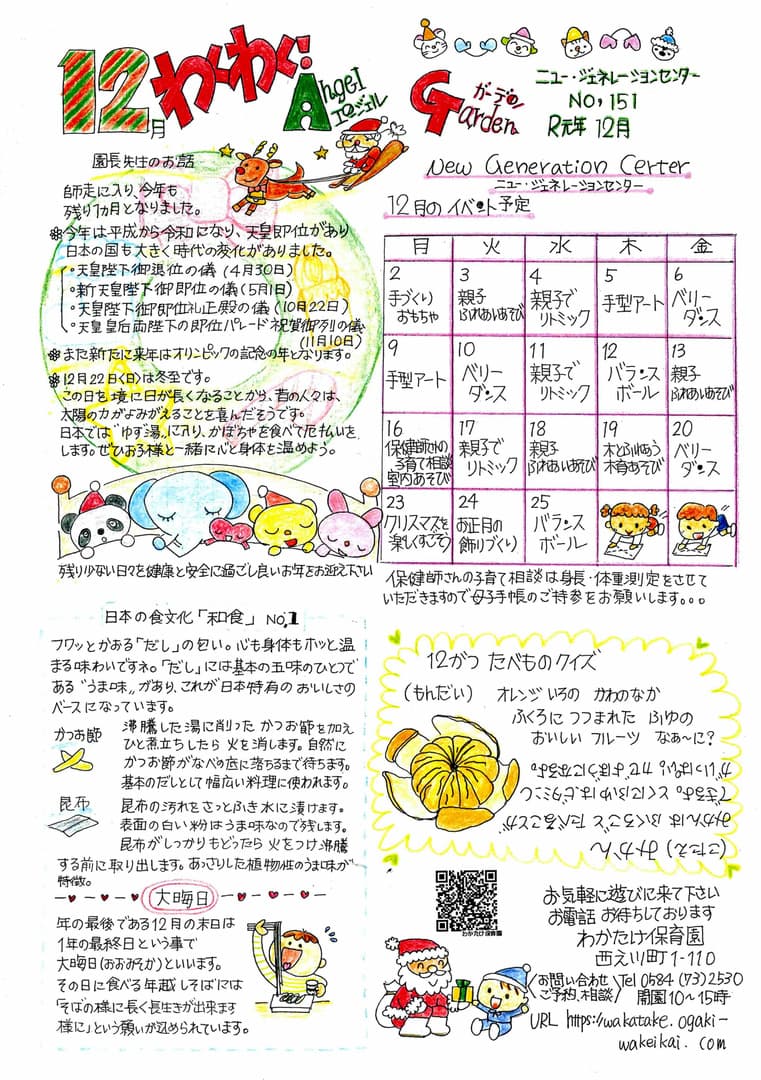 12月 わくわく!
Angel エンジェル
Garden ガーデン
ニュー・ジェネレーションセンター
NO, 151
R元年 12月
園長先生のお話
師走に入り、今年も
残り1カ月となりました。
❀今年は平成から令和になり、天皇即位があり
日本の国も大きく時代の変化がありました。
・天皇陛下御退位の儀(4月30日)
・新天皇陛下御即位の儀(5月1日)
・天皇陛下御即位礼正殿の儀(10月22日)
・天皇皇后両陛下の即位パレード祝賀御列の儀
(11月10日)
❀また新たに来年はオリンピックの記念の年となります。
❀12月22日(日)は冬至です。
この日を境に日が長くなることから、昔の人々は、
太陽の力がよみがえることを喜んだそうです。
日本では"ゆず湯"に入り、かぼちゃを食べて厄払いを
します。ぜひお子様と一緒に心と身体を温めよう。
残り少ない日々を健康と安全に過ごし良いお年をお迎え下さい
New Generation Certer
ニュー・ジェネレーションセンター
12月のイベント予定
月 火 水 木 金
2 手づくりおもちゃ
3 親子ふれあいあそび
4 親子でリトミック
5 手型アート
6 ベリーダンス
9 手型アート
10 ベリーダンス
11 親子でリトミック
12 バランスボール
13 親子ふれあいあそび
16 保健師さんの子育て相談室内あそび
17 親子でリトミック
18 親子ふれあいあそび
19 木とふれあう木育あそび
20 ベリーダンス
23 クリスマスを楽しくすごそう
24 お正月の飾りづくり
25 バランスボール
保健師さんの子育て相談は身長・体重測定をさせて
いただきますので母子手帳のご持参をお願いします。。。
日本の食文化「和食」 NO,1
フワッとかおる「だし」の匂い。心も身体もホッと温
まる味わいですネ。「だし」には基本の五味のひとつで
ある"うま味"があり、これが日本特有のおいしさの
ベースになっています。
かつお節
沸騰した湯に削ったかつお節を加え
ひと煮立ちしたら火を消します。自然に
かつお節がなべの底に落ちるまで待ちます。
基本のだしとして幅広い料理に使われます。
昆布
昆布の汚れをさっとふき水に漬けます。
表面の白い粉はうま味なので残します。
昆布がしっかりもどったら火をつけ沸騰
する前に取り出します。あっさりした植物性のうま味が
特徴。
大晦日
年の最後である12月の末日は
1年の最終日という事で
大晦日(おおみそか)といいます。
その日に食べる年越しそばには
「そばの様に長く長生きが出来ます
様に」という願いが込められています。
12がつ たべものクイズ
(もんだい) オレンジいろの かわのなか
ふくろにつつまれた ふゆの
おいしい フルーツ なぁ〜に?
(こたえ) みかん
みかんはふくろごと たべることが
できるよ。とくにふゆはビタミンC
がいっぱいで
お気軽に遊びに来て下さい
お電話 お待ちしております
わかたけ保育園
西之川町1-110
お問い合わせ
ご予約、相談
Tel 0584(73)2530
開園10〜15時
URL https://wakatake.ogaki-
wakeikai.com
わかたけ保育園